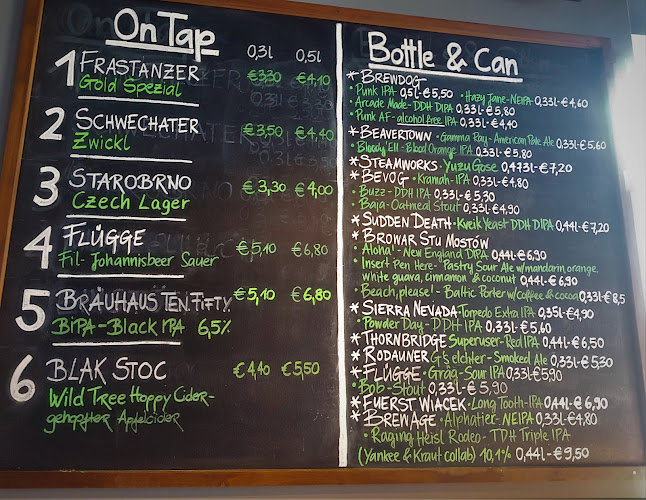 On Tap
0,3l 0,5l
1 FRASTANZER €3,30 €4,10
Gold Spezial
2 SCHWECHATER €3,50 €4,40
Zwickl
3 STAROBRNO €3,30 €4,00
Czech Lager
4 FLÜGGE €5,10 €6,80
Fil-Johannisbeer Sauer
5 BRÄUHAUS TEN.FIFTY €5,10 €6,80
BIPA-Black IPA 6,5%
6 BLAK STOC €4,40 €5,50
Wild Tree Hoppy Cider-
gehopfter Apfelcider
Bottle & Can
* BREWDOG
• Punk IPA 0,5l-€5,50 • Hazy Jane-NEIPA 0,33l-€4,60
• Arcade Mode-DDH DIPA 0,33l-€5,80
• Punk AF-alcohol free IPA 0,33l-€4,40
* BEAVERTOWN • Gamma Ray-American Pale Ale 0,33l-€5,60
• Bloody 'Ell-Blood Orange IPA 0,33l-€5,80
* STEAMWORKS • Yuzu Gose 0,473l-€7,20
* BEVOG • Kramah-IPA 0,33l-€4,80
• Buzz-DDH IPA 0,33l-€5,30
• Baja-Oatmeal Stout 0,33l-4,90
* SUDDEN DEATH • Kveik Yeast DDH DIPA 0,44l-€7,20
* BROWAR STU MOSTÓW
• Aloha!-New England DIPA 0,44l-€6,90
• Insert Pen Here-Pastry Sour Ale w/mandarin, orange,
white guava, cinnamon & coconut 0,44l-6,90
• Beach, please!-Baltic Porter w/Coffee & cocoa 0,33l-€8,5
* SIERRA NEVADA • Torpedo Extra IPA 0,35l-€4,90
• Powder Day-DDH IPA 0,33l-€5,60
* THORNBRIDGE Superuser-Red IPA 0,44l-€6,50
* RODAUNER G's elchter-Smoked Ale 0,33l-€5,30
* FLÜGGE • Grāq-Sour IPA 0,33l-€5,90
• Bob-Stout 0,33l-€5,90
* FUERST WIACEK • Long Tooth-IPA 0,44l-€6,90
* BREW AGE • Alphatier-NEIPA 0,33l-€4,80
• Raging Heisl Rodeo-TDH Triple IPA
(Yankee & Kraut collab) 10,1% 0,44l-€9,50